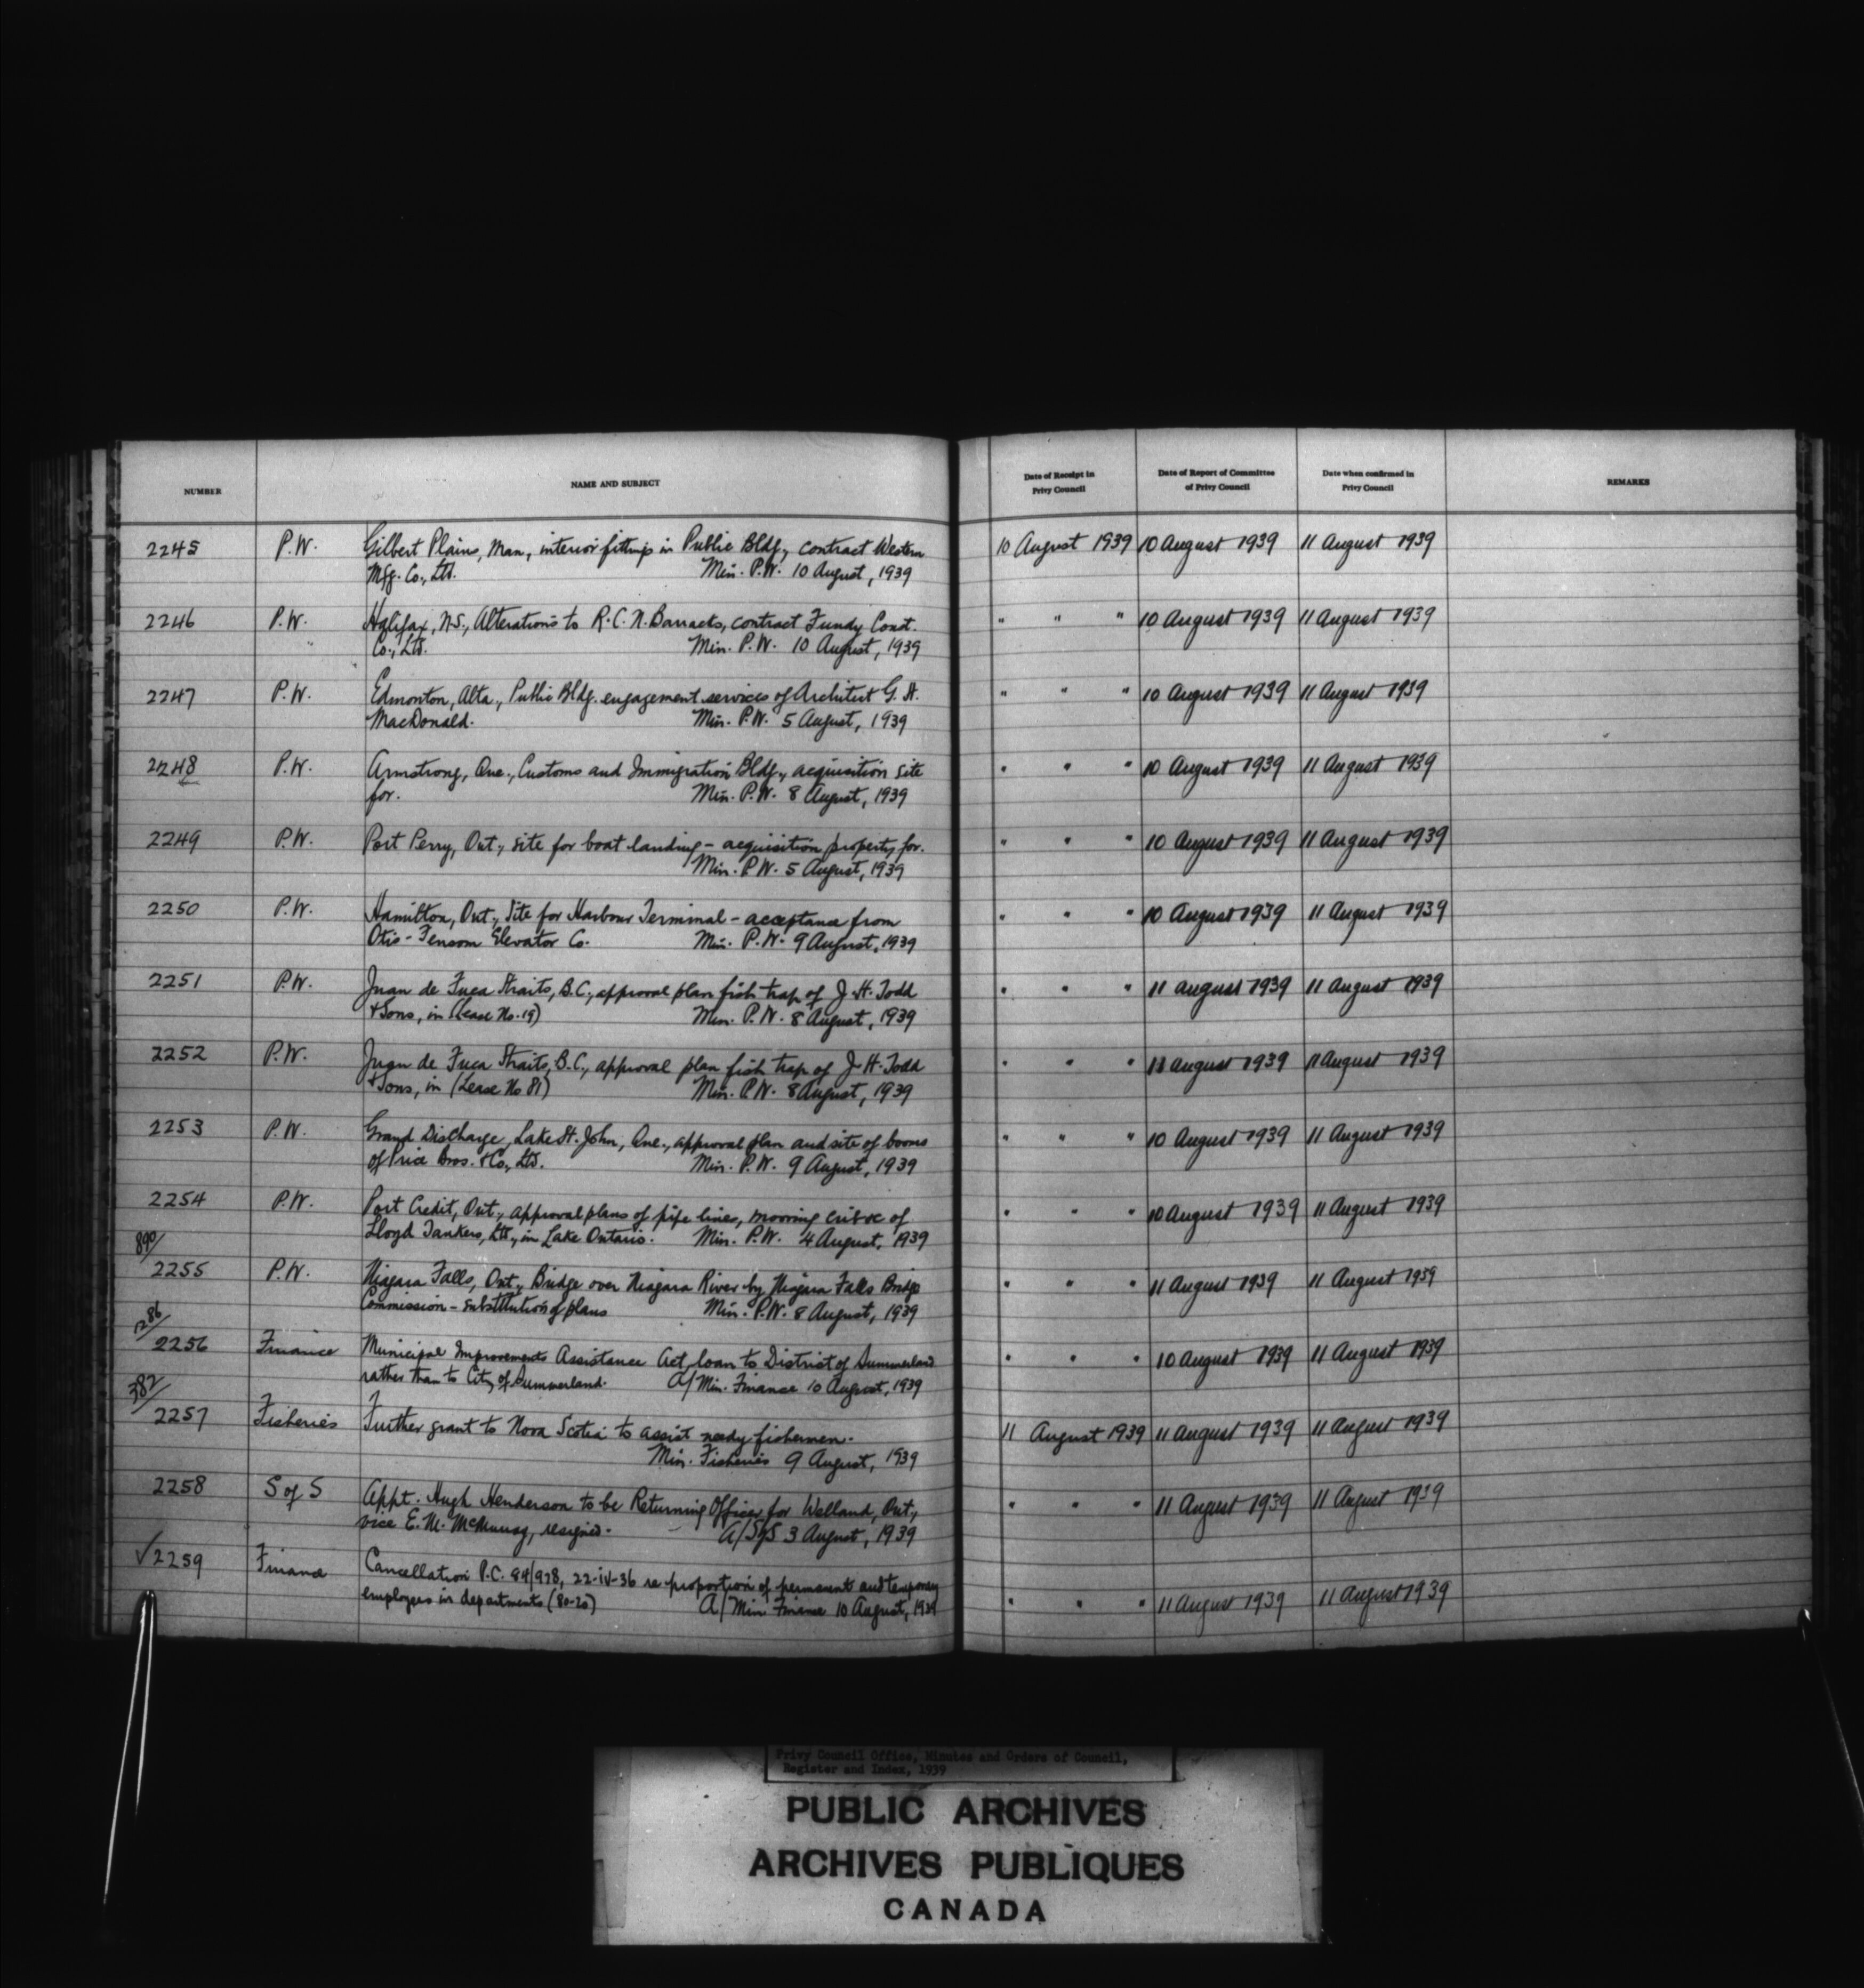 NUMBER NAME AND SUBJECT Date of Receipt in Privy Council Date of Report of Committee of Privy Council Date when confirmed in Privy Council REMARKS
2245 P.W. Gilbert Plains, Man, interior fittings in Public Bldg, contract Western 10 August 1939 10 August 1939 11 August 1939
Mfg. Co., Ltd. Min. P.W. 10 August, 1939
2246 P.W. Halifax, N.S., Alterations to R.C.N. Barracks, contract Fundy Const. " " " 10 August 1939 11 August 1939
Co., Ltd. Min. P.W. 10 August, 1939
2247 P.W. Edmonton, Alta., Public Bldg. engagement services of Architect G.H. " " " 10 August 1939 11 August 1939
MacDonald. Min. P.W. 5 August, 1939
2248 P.W. Armstrong, Que., Customs and Immigration Bldg., acquisition site " " " 10 August 1939 11 August 1939
for. Min. P.W. 8 August, 1939
2249 P.W. Port Perry, Ont., site for boat landing - acquisition property for. " " " 10 August 1939 11 August 1939
Min. P.W. 5 August, 1939
2250 P.W. Hamilton, Ont., Site for Harbour Terminal - acceptance from " " " 10 August 1939 11 August 1939
Otis-Fensom Elevator Co. Min. P.W. 9 August, 1939
2251 P.W. Juan de Fuca Straits, B.C., approval plan fish trap of J.H. Todd " " " 11 August 1939 11 August 1939
& Sons, in (Lease No. 19) Min. P.W. 8 August, 1939
2252 P.W. Juan de Fuca Straits, B.C., approval plan fish trap of J.H. Todd " " " 11 August 1939 11 August 1939
& Sons, in (Lease No 81) Min. P.W. 8 August, 1939
2253 P.W. Grand Discharge, Lake St. John, Que., approval plan and site of booms " " " 10 August 1939 11 August 1939
of Price Bros. & Co., Ltd. Min. P.W. 9 August, 1939
2254 P.W. Port Credit, Ont., approval plans of pipe lines, mooring crib &c of " " " 10 August 1939 11 August 1939
Lloyd Tankers, Ltd., in Lake Ontario. Min. P.W. 4 August, 1939
890/
2255 P.W. Niagara Falls, Ont., Bridge over Niagara River by Niagara Falls Bridge " " " 11 August 1939 11 August 1939
Commission - substitution of plans Min. P.W. 8 August, 1939
1286/
2256 Finance Municipal Improvements Assistance Act, loan to District of Summerland " " " 10 August 1939 11 August 1939
rather than to City of Summerland. A/Min. Finance 10 August, 1939
382/
2257 Fisheries Further grant to Nova Scotia to assist needy fishermen. 11 August 1939 11 August 1939 11 August 1939
Min. Fisheries 9 August, 1939
2258 S of S Appt. Hugh Henderson to be Returning Officer for Welland, Ont., " " " 11 August 1939 11 August 1939
vice E.M. McMurray, resigned. A/SofS 3 August, 1939
✓2259 Finance Cancellation P.C. 84/978, 22-iv-36 re proportion of permanent and temporary " " " 11 August 1939 11 August 1939
employees in departments (80-20) A/Min Finance 10 August, 1939
Privy Council Office, Minutes and Orders of Council,
Register and Index, 1939
PUBLIC ARCHIVES
ARCHIVES PUBLIQUES
CANADA